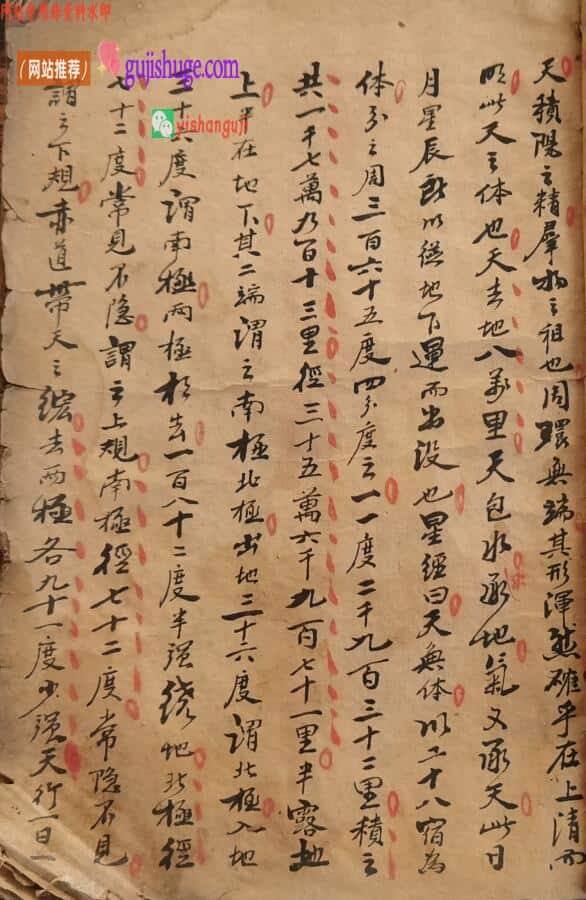 （网站推荐）
gujishuge.com
yishanguji
天積陽之精羣物之祖也周環無端其形渾然確乎在上清而
明此天之体也天去地八萬里天包水承地氣又承天此日
月星辰所以從地下運而出没也星經曰天無体以二十八宿為
体分之周三百六十五度四分度之一一度二千九百三十二里積之
共一千七萬九百十三里徑三十五萬六千九百七十一里半露地
上半在地下其二端謂之南極北極出地三十六度謂北極入地
三十六度謂南極兩極相去一百八十二度半强繞地北極徑
七十二度常見不隱謂之上規南極徑七十二度常隱不見
謂之下規赤道帶天之紘去兩極各九十一度少强天行一日一